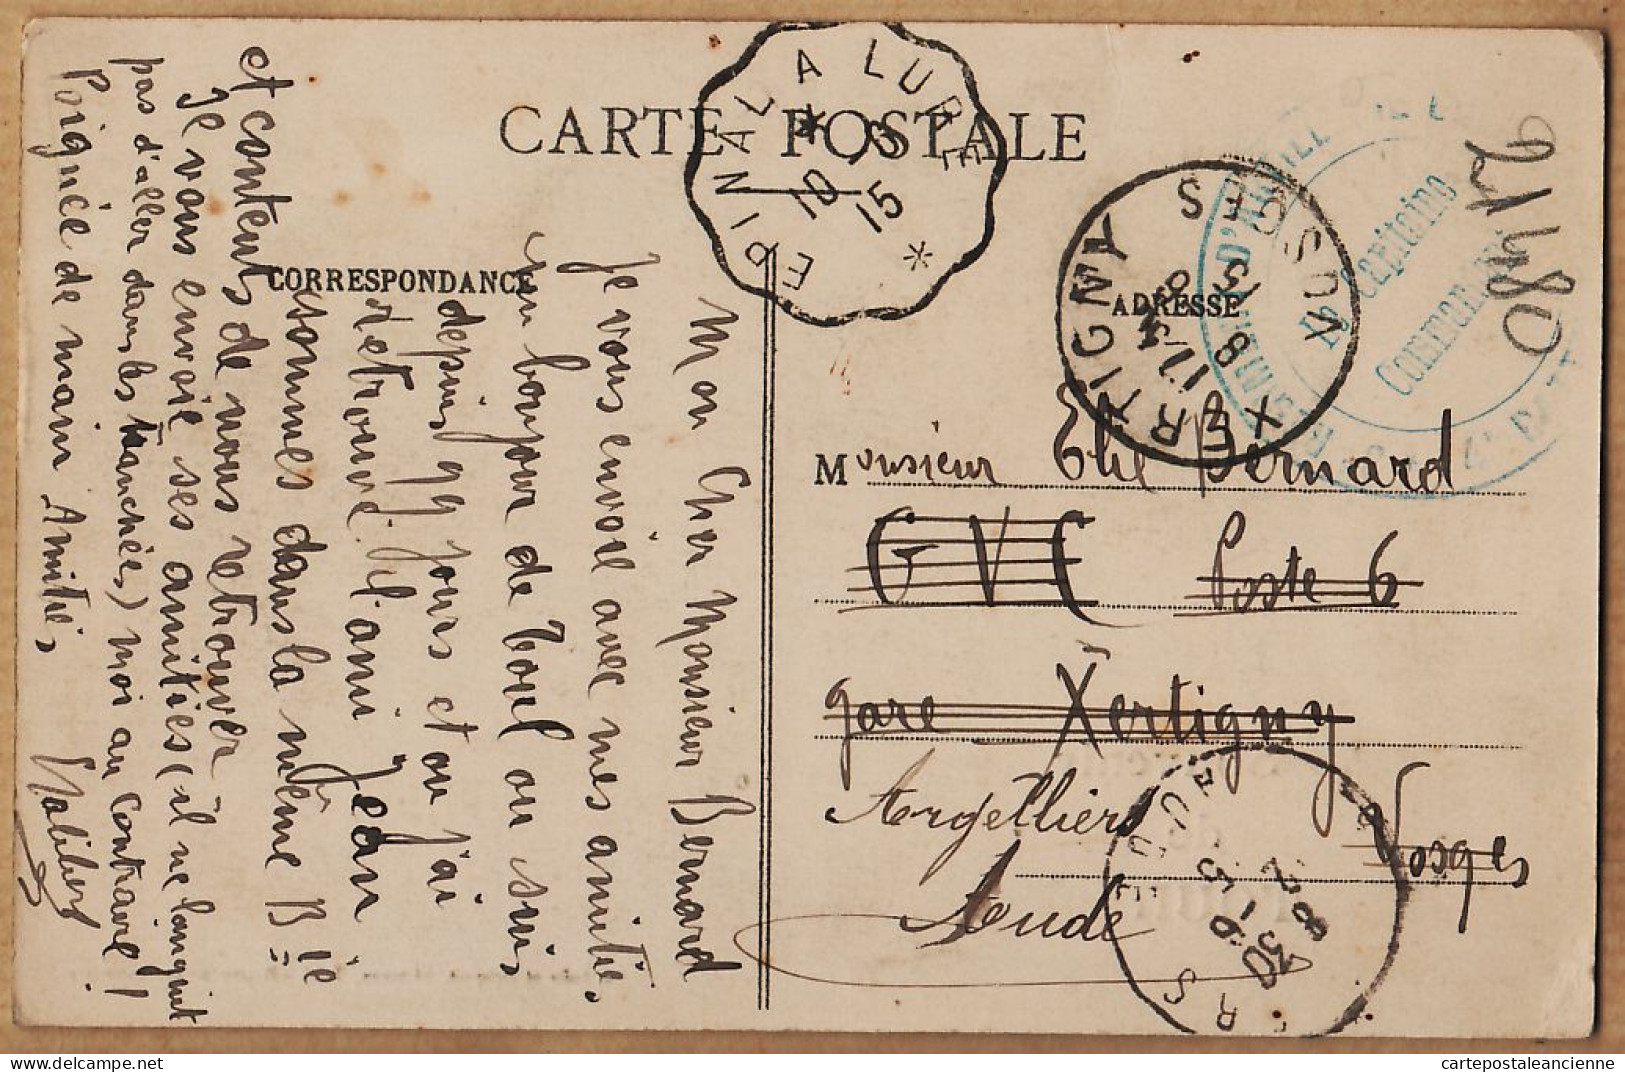 CARTE POSTALE
CORRESPONDANCE
ADRESSE
Mon Cher Monsieur Bernard
Je vous envoie avec mes amitiés,
un bonjour de Toul ou suis
depuis qq jours et ou j'ai
retrouvé l'ami Jean
sommes dans la même Bie
et contents de nous retrouver
Je vous envoie ses amitiés (il ne languit
pas d'aller dans les tranchées) moi au contraire!
Poignée de main Amitiés
Monsieur Elie Bernard
G V C Poste 6
gare Xertigny
Vosges
Argelliers
Aude
21480
EPINAL A LURE
10 15
XERTIGNY VOSGES
Capitaine
Command
cartepostaleancienne